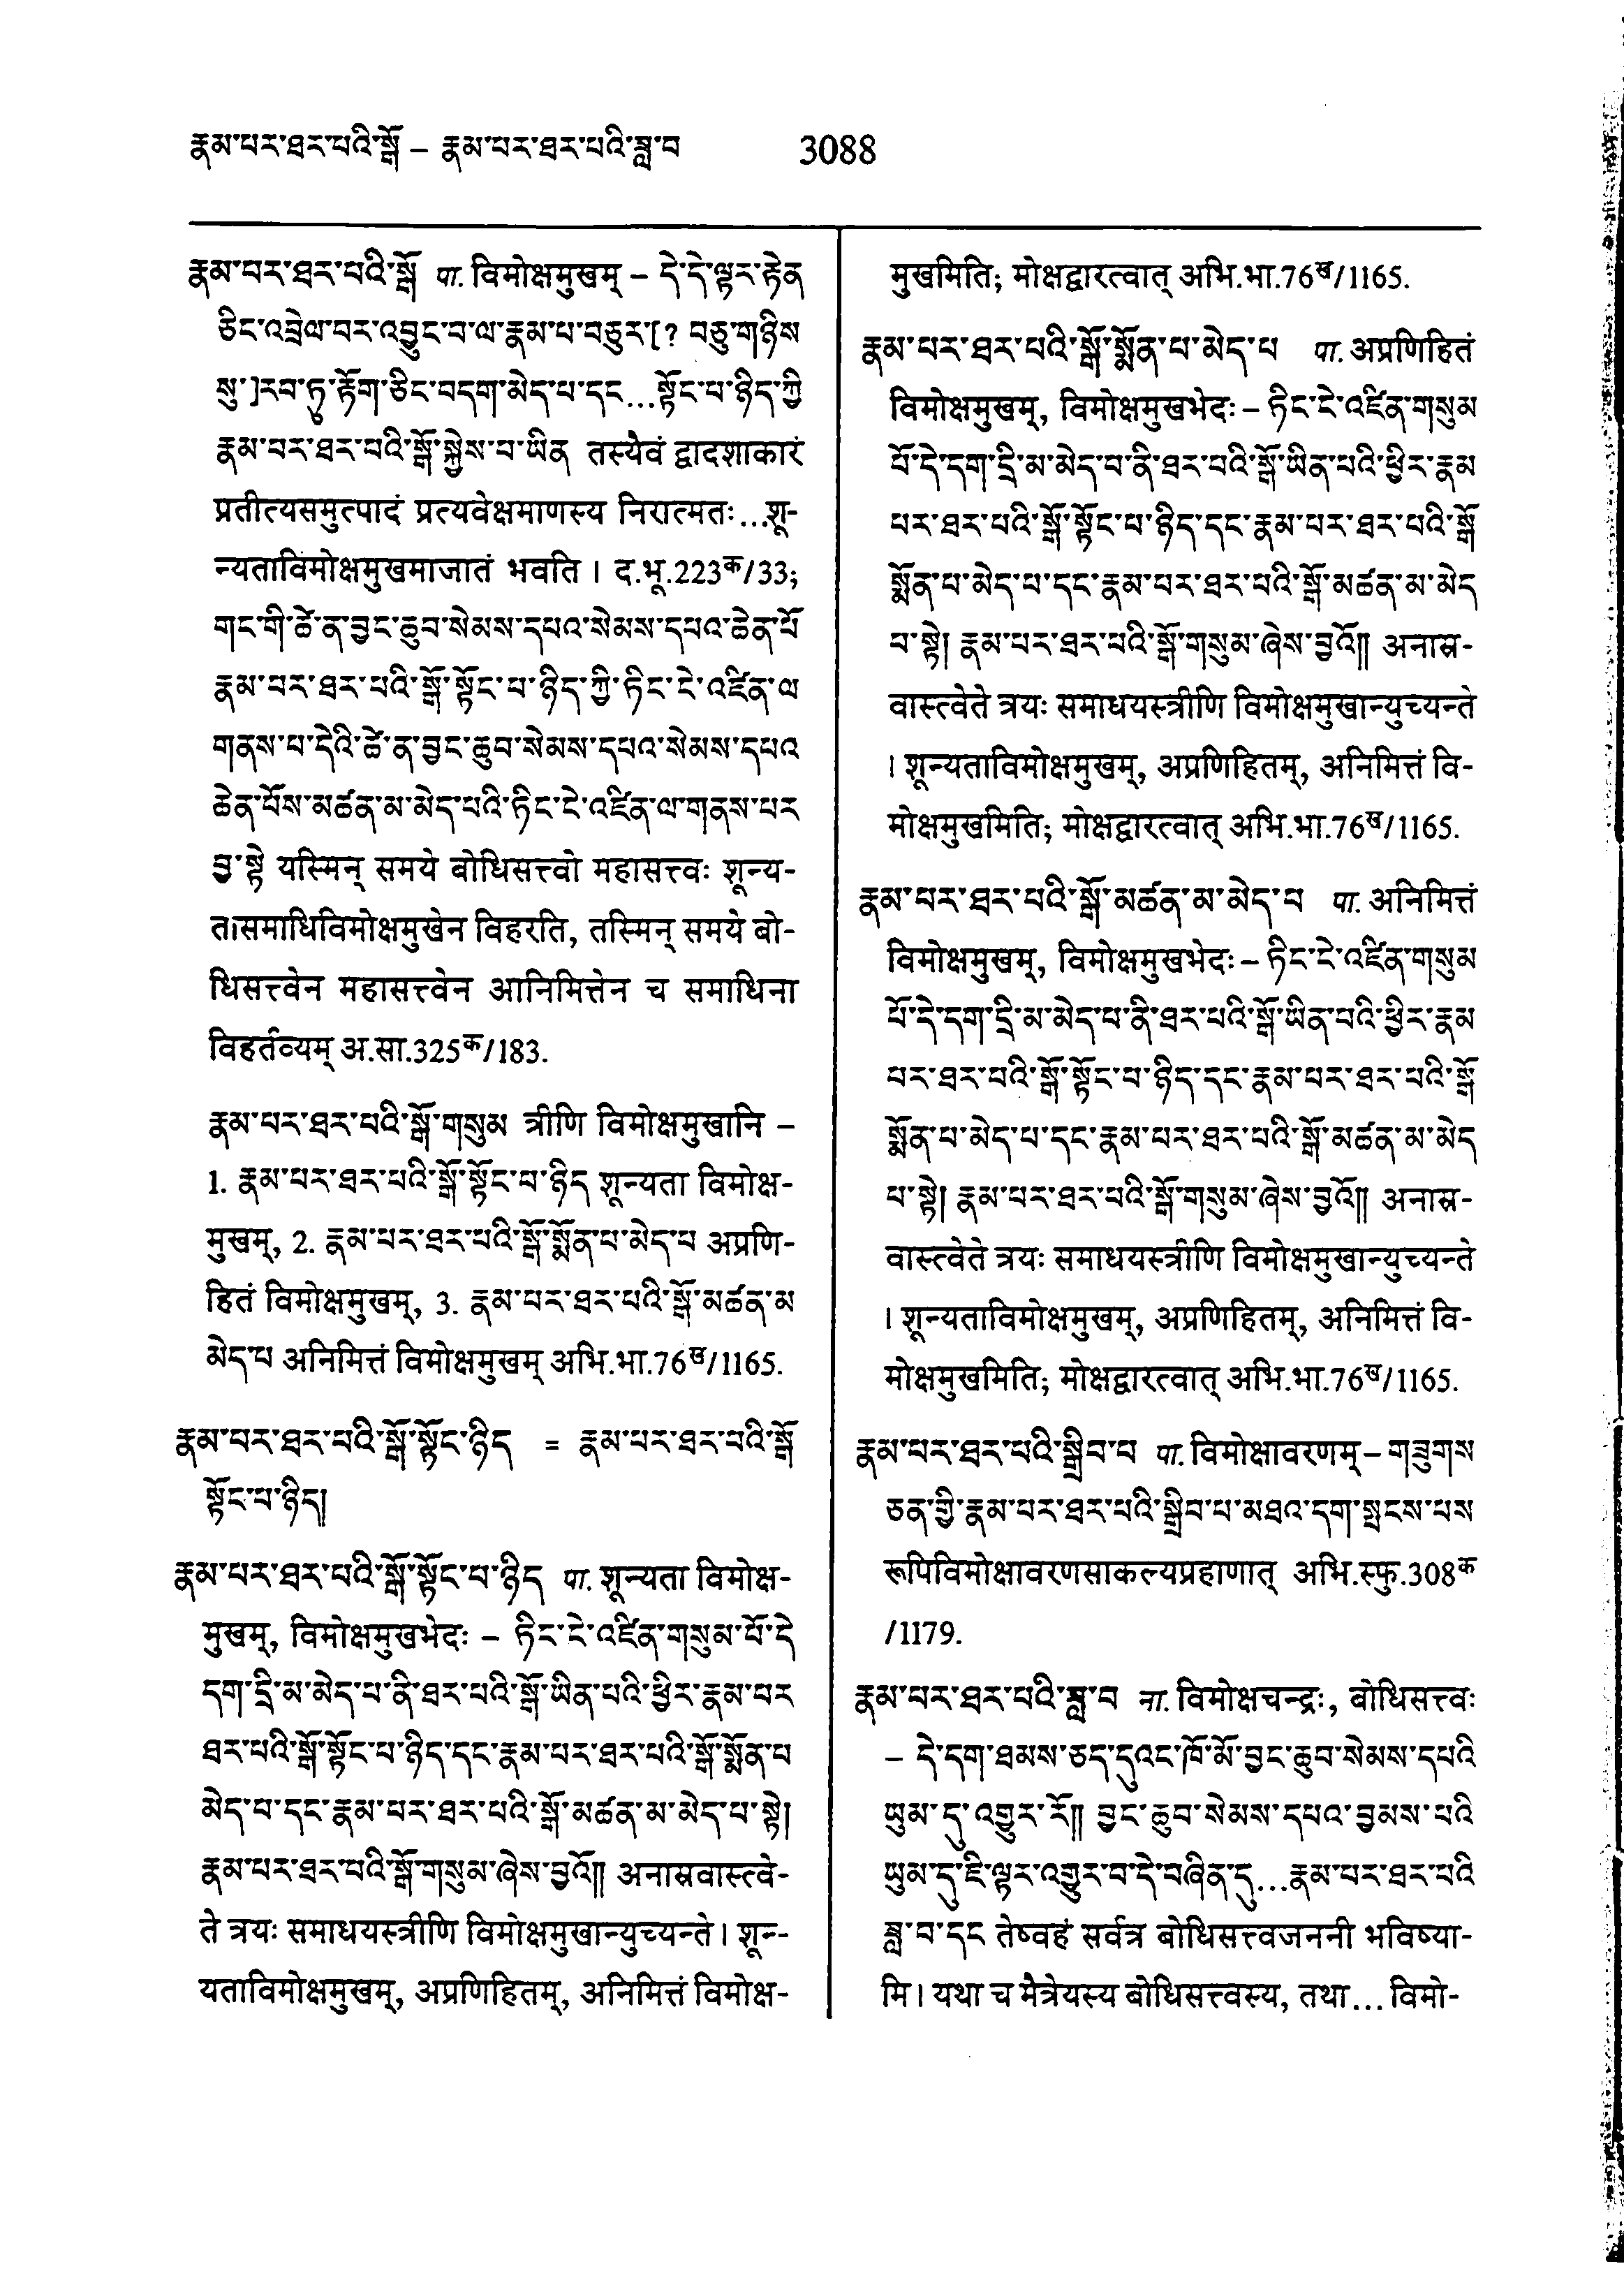 རྣམ་པར་ཐར་པའི་སྒོ – རྣམ་པར་ཐར་པའི་ཟླ་བ 3088
རྣམ་པར་ཐར་པའི་སྒོ पा. विमोक्षमुखम् – དེ་དེ་ལྟར་རྟེན
ཅིང་འབྲེལ་བར་འབྱུང་བ་ལ་རྣམ་པ་བཅུར་[? བཅུ་གཉིས
སུ་]རབ་ཏུ་རྟོག་ཅིང་བདག་མེད་པ་དང...སྟོང་པ་ཉིད་ཀྱི
རྣམ་པར་ཐར་པའི་སྒོ་སྐྱེས་པ་ཡིན तस्यैवं द्वादशाकारं
प्रतीत्यसमुत्पादं प्रत्यवेक्षमाणस्य निरात्मतः...शू-
न्यताविमोक्षमुखमाजातं भवति । द.भू.223क/33;
གང་གི་ཚེ་ན་བྱང་ཆུབ་སེམས་དཔའ་སེམས་དཔའ་ཆེན་པོ
རྣམ་པར་ཐར་པའི་སྒོ་སྟོང་པ་ཉིད་ཀྱི་ཏིང་ངེ་འཛིན་ལ
གནས་པ་དེའི་ཚེ་ན་བྱང་ཆུབ་སེམས་དཔའ་སེམས་དཔའ
ཆེན་པོས་མཚན་མ་མེད་པའི་ཏིང་ངེ་འཛིན་ལ་གནས་པར
བྱ་སྟེ यस्मिन् समये बोधिसत्त्वो महासत्त्वः शून्य-
तासमाधिविमोक्षमुखेन विहरति, तस्मिन् समये बो-
धिसत्त्वेन महासत्त्वेन आनिमित्तेन च समाधिना
विहर्तव्यम् अ.सा.325क/183.
རྣམ་པར་ཐར་པའི་སྒོ་གསུམ त्रीणि विमोक्षमुखानि –
1. རྣམ་པར་ཐར་པའི་སྒོ་སྟོང་པ་ཉིད शून्यता विमोक्ष-
मुखम्, 2. རྣམ་པར་ཐར་པའི་སྒོ་སྨོན་པ་མེད་པ अप्रणि-
हितं विमोक्षमुखम्, 3. རྣམ་པར་ཐར་པའི་སྒོ་མཚན་མ
མེད་པ अनिमित्तं विमोक्षमुखम् अभि.भा.76ख/1165.
རྣམ་པར་ཐར་པའི་སྒོ་སྟོང་ཉིད = རྣམ་པར་ཐར་པའི་སྒོ
སྟོང་པ་ཉིད།
རྣམ་པར་ཐར་པའི་སྒོ་སྟོང་པ་ཉིད पा. शून्यता विमोक्ष-
मुखम्, विमोक्षमुखभेदः – ཏིང་ངེ་འཛིན་གསུམ་པོ་དེ
དག་དྲི་མ་མེད་པ་ནི་ཐར་པའི་སྒོ་ཡིན་པའི་ཕྱིར་རྣམ་པར
ཐར་པའི་སྒོ་སྟོང་པ་ཉིད་དང་རྣམ་པར་ཐར་པའི་སྒོ་སྨོན་པ
མེད་པ་དང་རྣམ་པར་ཐར་པའི་སྒོ་མཚན་མ་མེད་པ་སྟེ།
རྣམ་པར་ཐར་པའི་སྒོ་གསུམ་ཞེས་བྱའོ།། अनास्रवास्त्वे-
ते त्रयः समाधयस्त्रीणि विमोक्षमुखान्युच्यन्ते । शून्-
यताविमोक्षमुखम्, अप्रणिहितम्, अनिमित्तं विमोक्ष-
मुखमिति; मोक्षद्वारत्वात् अभि.भा.76ख/1165.
རྣམ་པར་ཐར་པའི་སྒོ་སྨོན་པ་མེད་པ पा. अप्रणिहितं
विमोक्षमुखम्, विमोक्षमुखभेदः – ཏིང་ངེ་འཛིན་གསུམ
པོ་དེ་དག་དྲི་མ་མེད་པ་ནི་ཐར་པའི་སྒོ་ཡིན་པའི་ཕྱིར་རྣམ
པར་ཐར་པའི་སྒོ་སྟོང་པ་ཉིད་དང་རྣམ་པར་ཐར་པའི་སྒོ
སྨོན་པ་མེད་པ་དང་རྣམ་པར་ཐར་པའི་སྒོ་མཚན་མ་མེད
པ་སྟེ། རྣམ་པར་ཐར་པའི་སྒོ་གསུམ་ཞེས་བྱའོ།། अनास्र-
वास्त्वेते त्रयः समाधयस्त्रीणि विमोक्षमुखान्युच्यन्ते
। शून्यताविमोक्षमुखम्, अप्रणिहितम्, अनिमित्तं वि-
मोक्षमुखमिति; मोक्षद्वारत्वात् अभि.भा.76ख/1165.
རྣམ་པར་ཐར་པའི་སྒོ་མཚན་མ་མེད་པ पा. अनिमित्तं
विमोक्षमुखम्, विमोक्षमुखभेदः – ཏིང་ངེ་འཛིན་གསུམ
པོ་དེ་དག་དྲི་མ་མེད་པ་ནི་ཐར་པའི་སྒོ་ཡིན་པའི་ཕྱིར་རྣམ
པར་ཐར་པའི་སྒོ་སྟོང་པ་ཉིད་དང་རྣམ་པར་ཐར་པའི་སྒོ
སྨོན་པ་མེད་པ་དང་རྣམ་པར་ཐར་པའི་སྒོ་མཚན་མ་མེད
པ་སྟེ། རྣམ་པར་ཐར་པའི་སྒོ་གསུམ་ཞེས་བྱའོ།། अनास्र-
वास्त्वेते त्रयः समाधयस्त्रीणि विमोक्षमुखान्युच्यन्ते
। शून्यताविमोक्षमुखम्, अप्रणिहितम्, अनिमित्तं वि-
मोक्षमुखमिति; मोक्षद्वारत्वात् अभि.भा.76ख/1165.
རྣམ་པར་ཐར་པའི་སྒྲིབ་པ पा. विमोक्षावरणम् – གཟུགས
ཅན་གྱི་རྣམ་པར་ཐར་པའི་སྒྲིབ་པ་མཐའ་དག་སྤངས་པས
रूपिविमोक्षावरणसाकल्यप्रहाणात् अभि.स्फु.308क
/1179.
རྣམ་པར་ཐར་པའི་ཟླ་བ ना. विमोक्षचन्द्रः, बोधिसत्त्वः
– དེ་དག་ཐམས་ཅད་དུའང་ཁོ་མོ་བྱང་ཆུབ་སེམས་དཔའི
ཡུམ་དུ་འགྱུར་རོ།། བྱང་ཆུབ་སེམས་དཔའ་བྱམས་པའི
ཡུམ་དུ་ཇི་ལྟར་འགྱུར་བ་དེ་བཞིན་དུ...རྣམ་པར་ཐར་པའི
ཟླ་བ་དང तेष्वहं सर्वत्र बोधिसत्त्वजननी भविष्या-
मि । यथा च मैत्रेयस्य बोधिसत्त्वस्य, तथा... विमो-